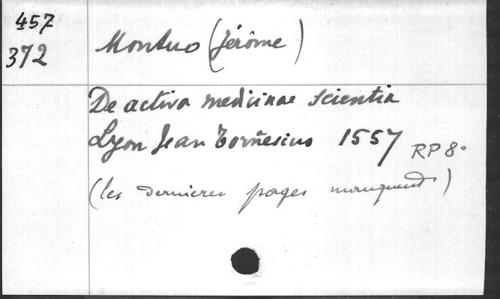 457
372
Montuo (Jérôme)
De activa medicinae scientia
Lyon Jean Tornesius 1557 RP 8°
(les dernieres pages manquent)